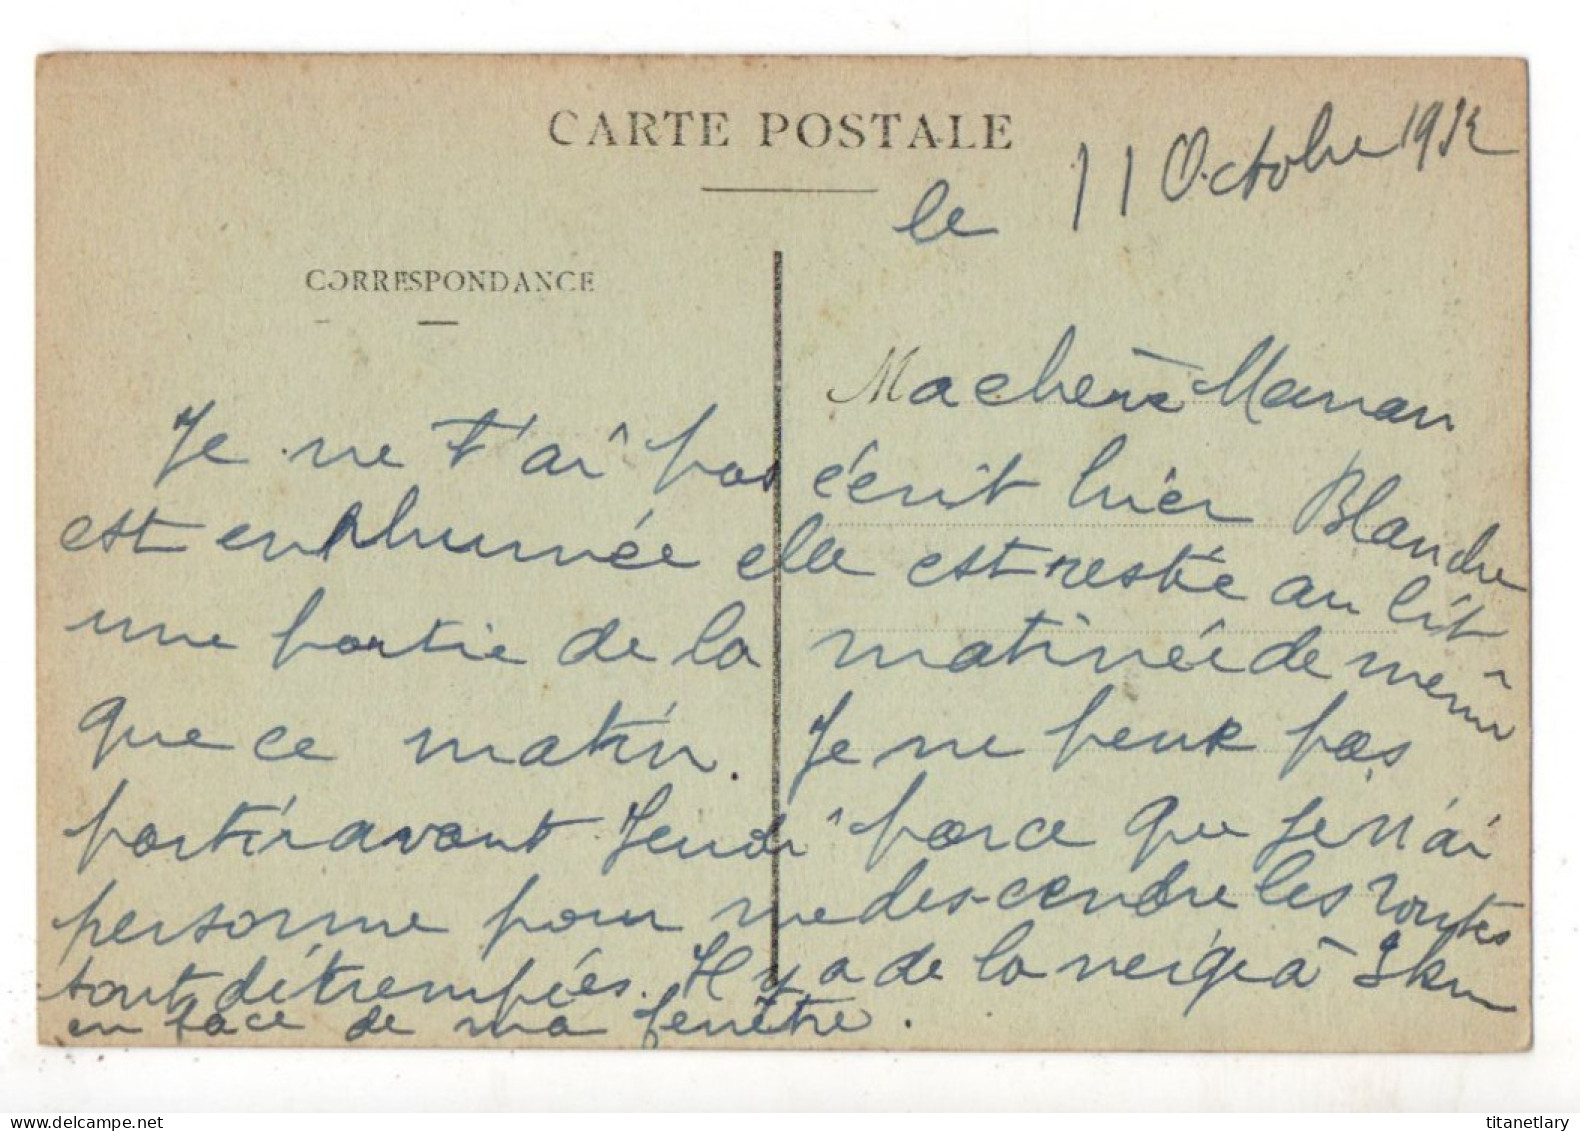 CARTE POSTALE
le 11 Octobre 19
CORRESPONDANCE
Ma chère Maman
Je ne t'ai pas écrit hier Blanche
est enrhumée elle est restée au lit
une partie de la matinée de même
que ce matin. Je ne peux pas
partir avant Jeudi parce que je n'ai
personne pour me descendre les routes
sont détrempées. Il y a de la neige à 3km
en face de ma fenêtre.
titanetlary